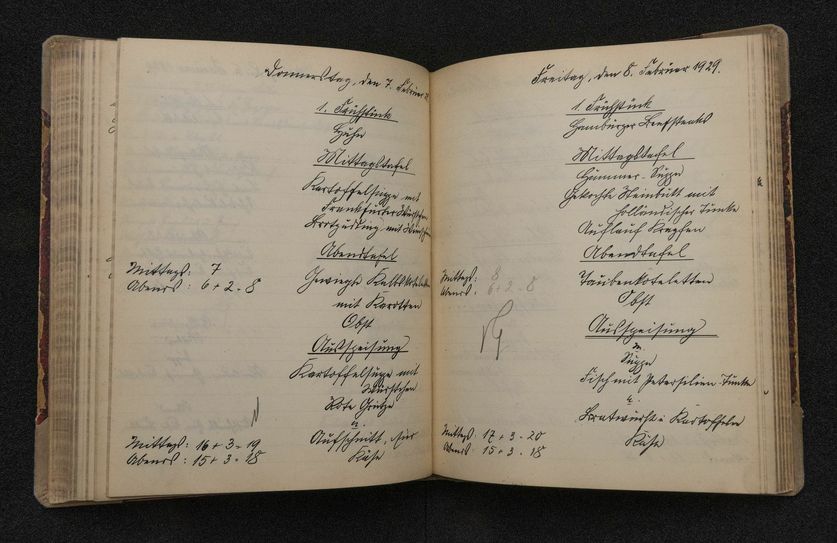 Donnerstag, den 7. Februar
1. Frühstück
Huhn
Mittagstafel
Kartoffelsuppe mit
Frankfurter Würstchen
Brotpudding mit
Abendtafel
Mittags: 7
Gewiegte Kalbskoteletten
Abends: 6 + 2 = 8
mit Karotten
Obst
Ausspeisung
Kartoffelsuppe mit
Würstchen
Rote Grütze
u.
Mittags: 16 + 3 = 19
Aufschnitt,
Abends: 15 + 3 = 18
Käse
Freitag, den 8. Februar 1929.
1. Frühstück
Hamburger Beefsteaks
Mittagstafel
Hummer-Suppe
Gekochte Steinbutt mit
holländischer Tunke
Auflauf Krapfen
Abendtafel
Mittags: 8
Taubenkoteletten
Abends: 6 + 2 = 8
Obst
Ausspeisung
Suppe
Fisch mit Petersilien-Tunke
u.
Bratwurst u. Kartoffeln
Mittags: 17 + 3 = 20
Käse
Abends: 15 + 3 = 18